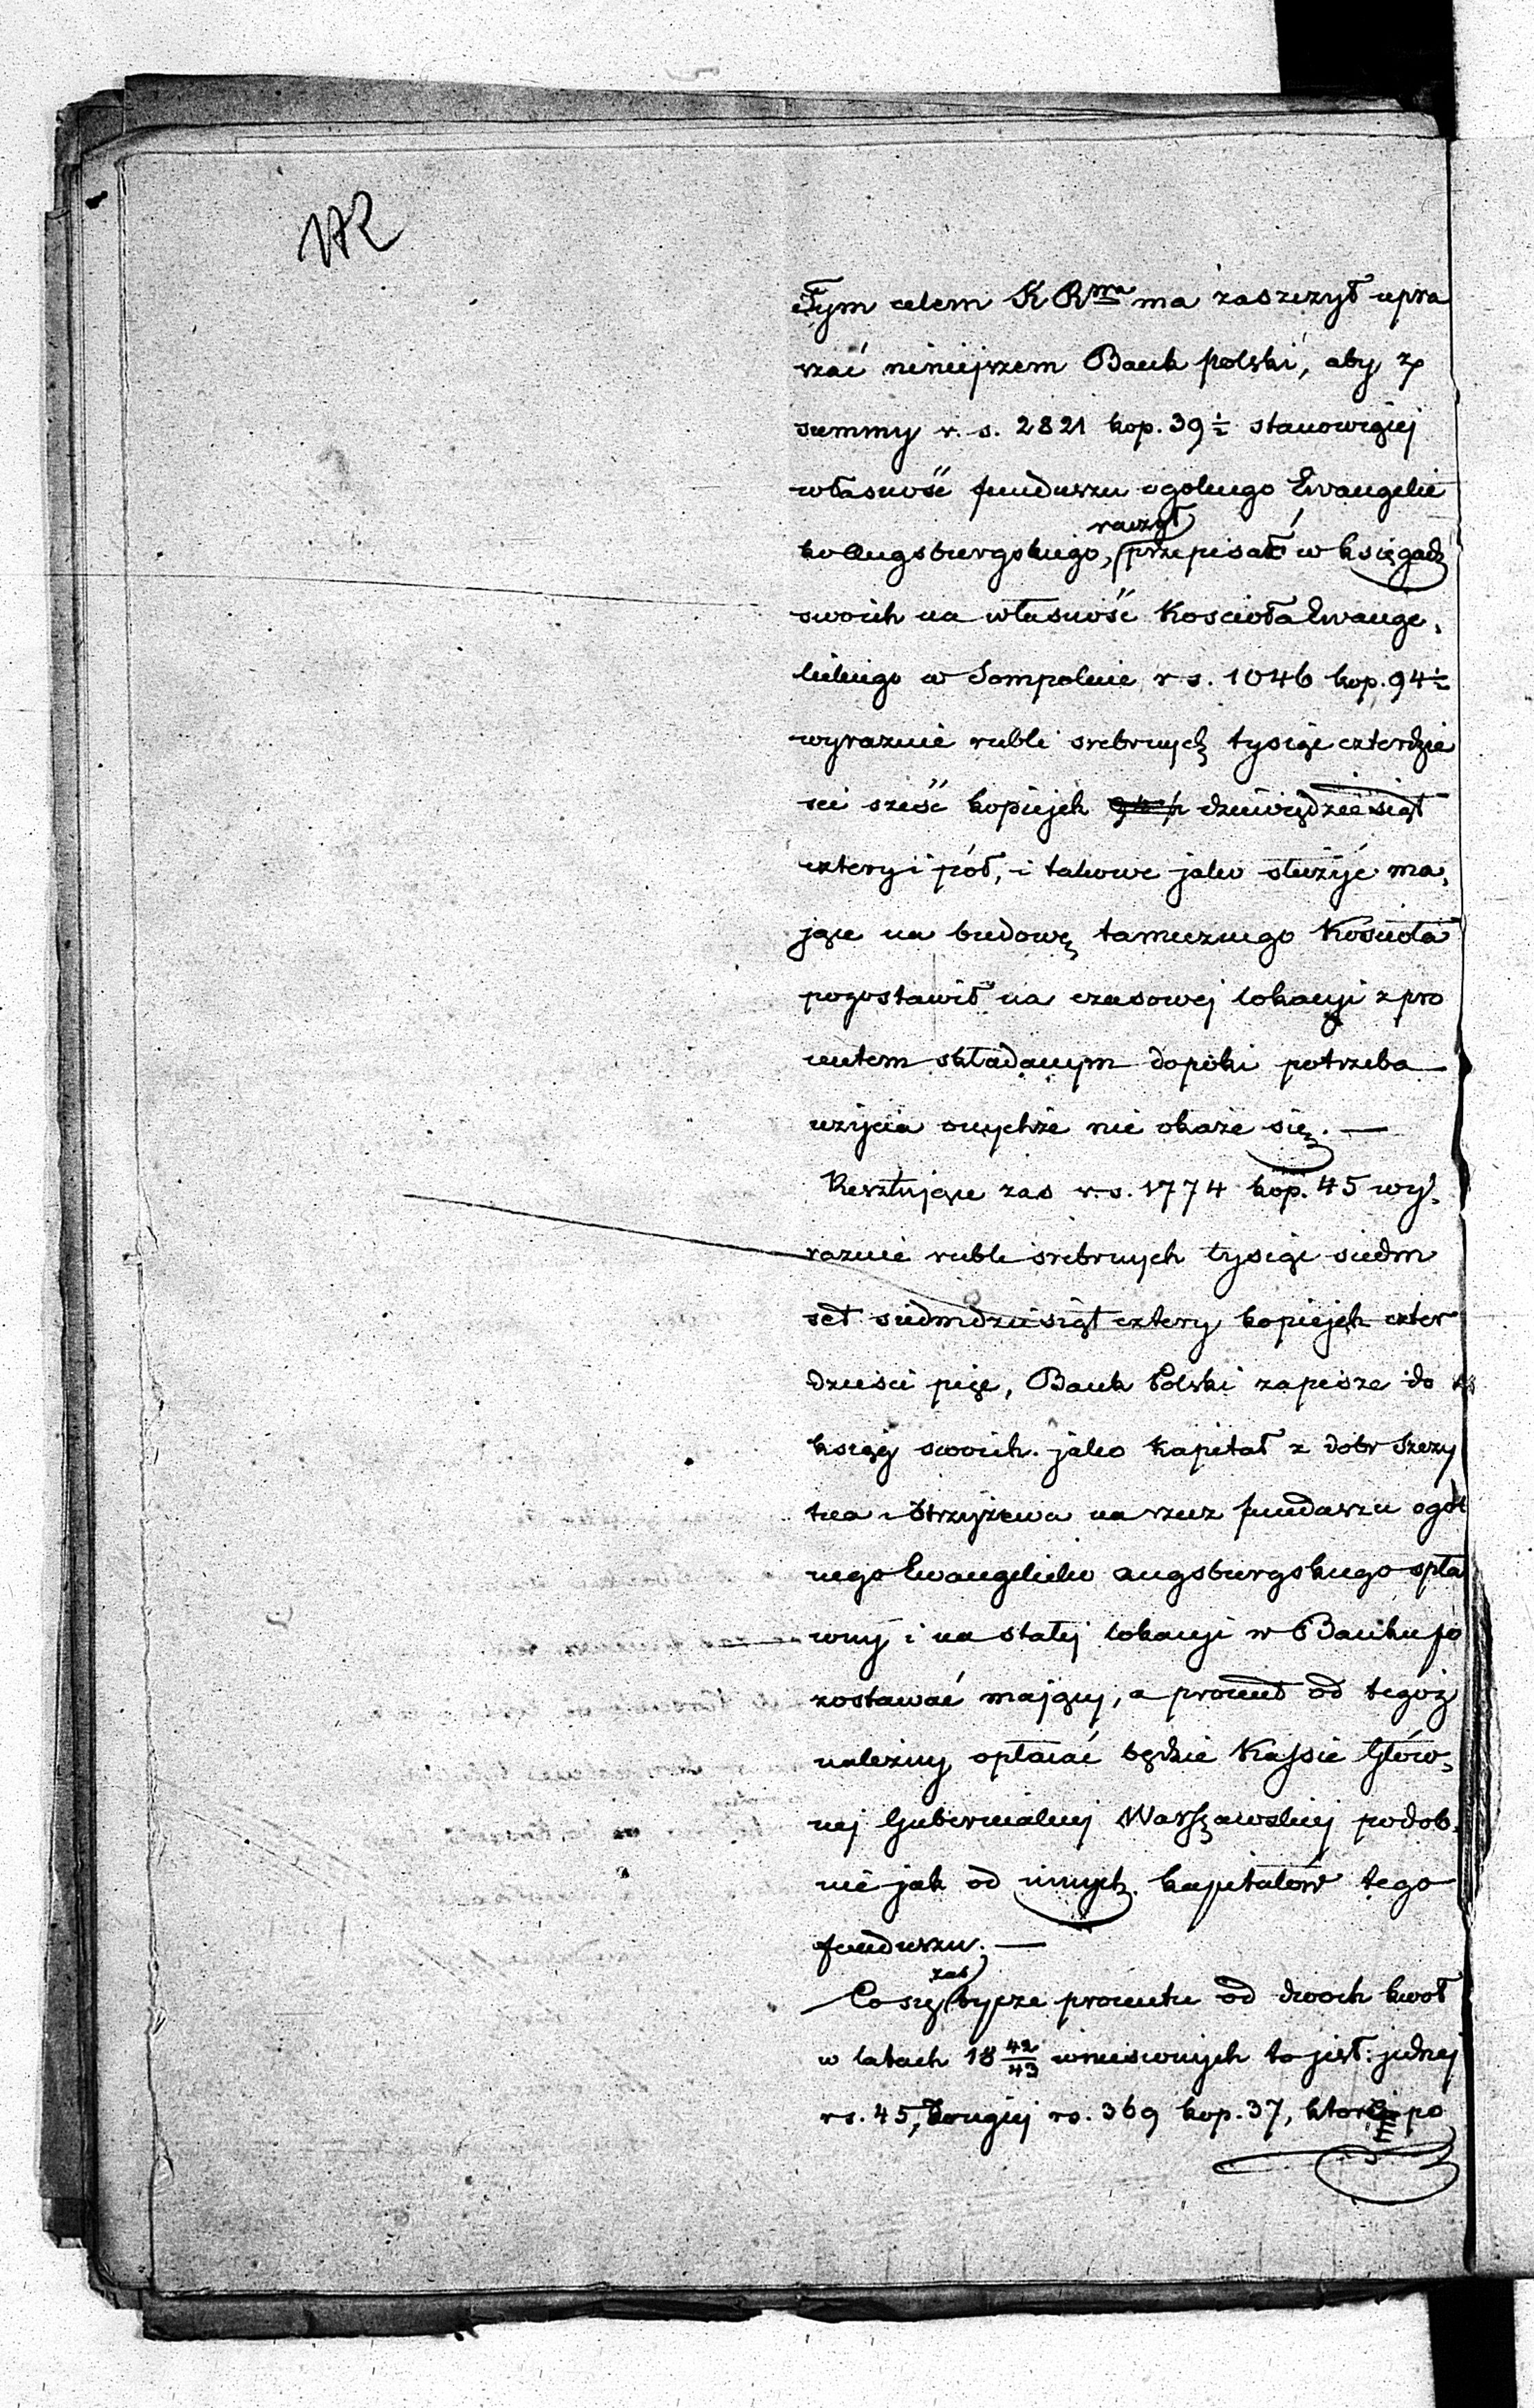 172
Tym celem K R wa ma zaszczyt upra
szać niniejszem Bank polski, aby z
summy r. s. 2821 kop. 39½ stanowiącej
własność funduszu ogolnego Ewangelic
raczył
ko Augsburgskiego, przepisać w księgach
swoich na własność Kościoła Ewange,
lickiego w Sompolnie r s. 1046 kop. 94½
wyraznie rubli srebrnych tysiąc czterdzie
sci sześć kopiejek dziewięćdziesiąt
cztery i pół, i takowe jako służyć ma,
jące na budowę tamecznego Kościoła
pozostawił na czasowej lokacyi z pro
centem składanym dopóki potrzeba
użycia onychże nie okaże się. —
Resztujące zas r. s. 1774 kop. 45 wy,
raznie rubli srebrnych tysiąc siedm
set siedmdziesiąt cztery kopiejek czter
dzieści pięć, Bank Polski zapisze do
księg swoich jako kapitał z dobr Szczy
tna i Strzyżewa na rzecz funduszu ogól
nego Ewangelicko augsburgskiego spła
cony i na stałej lokacyi w Banku po
zostawać mający, a procent od tegoż
należny opłacać będzie Kassie Głów,
nej Gubernialnej Warszawskiej podob,
nie jak od innych kapitałów tego
funduszu. —
zas
Co się tycze procentu od dwoch kwot
w latach 18 42/43 wniesionych to jest: jednej
rs. 45, drugiej rs. 369 kop. 37, po